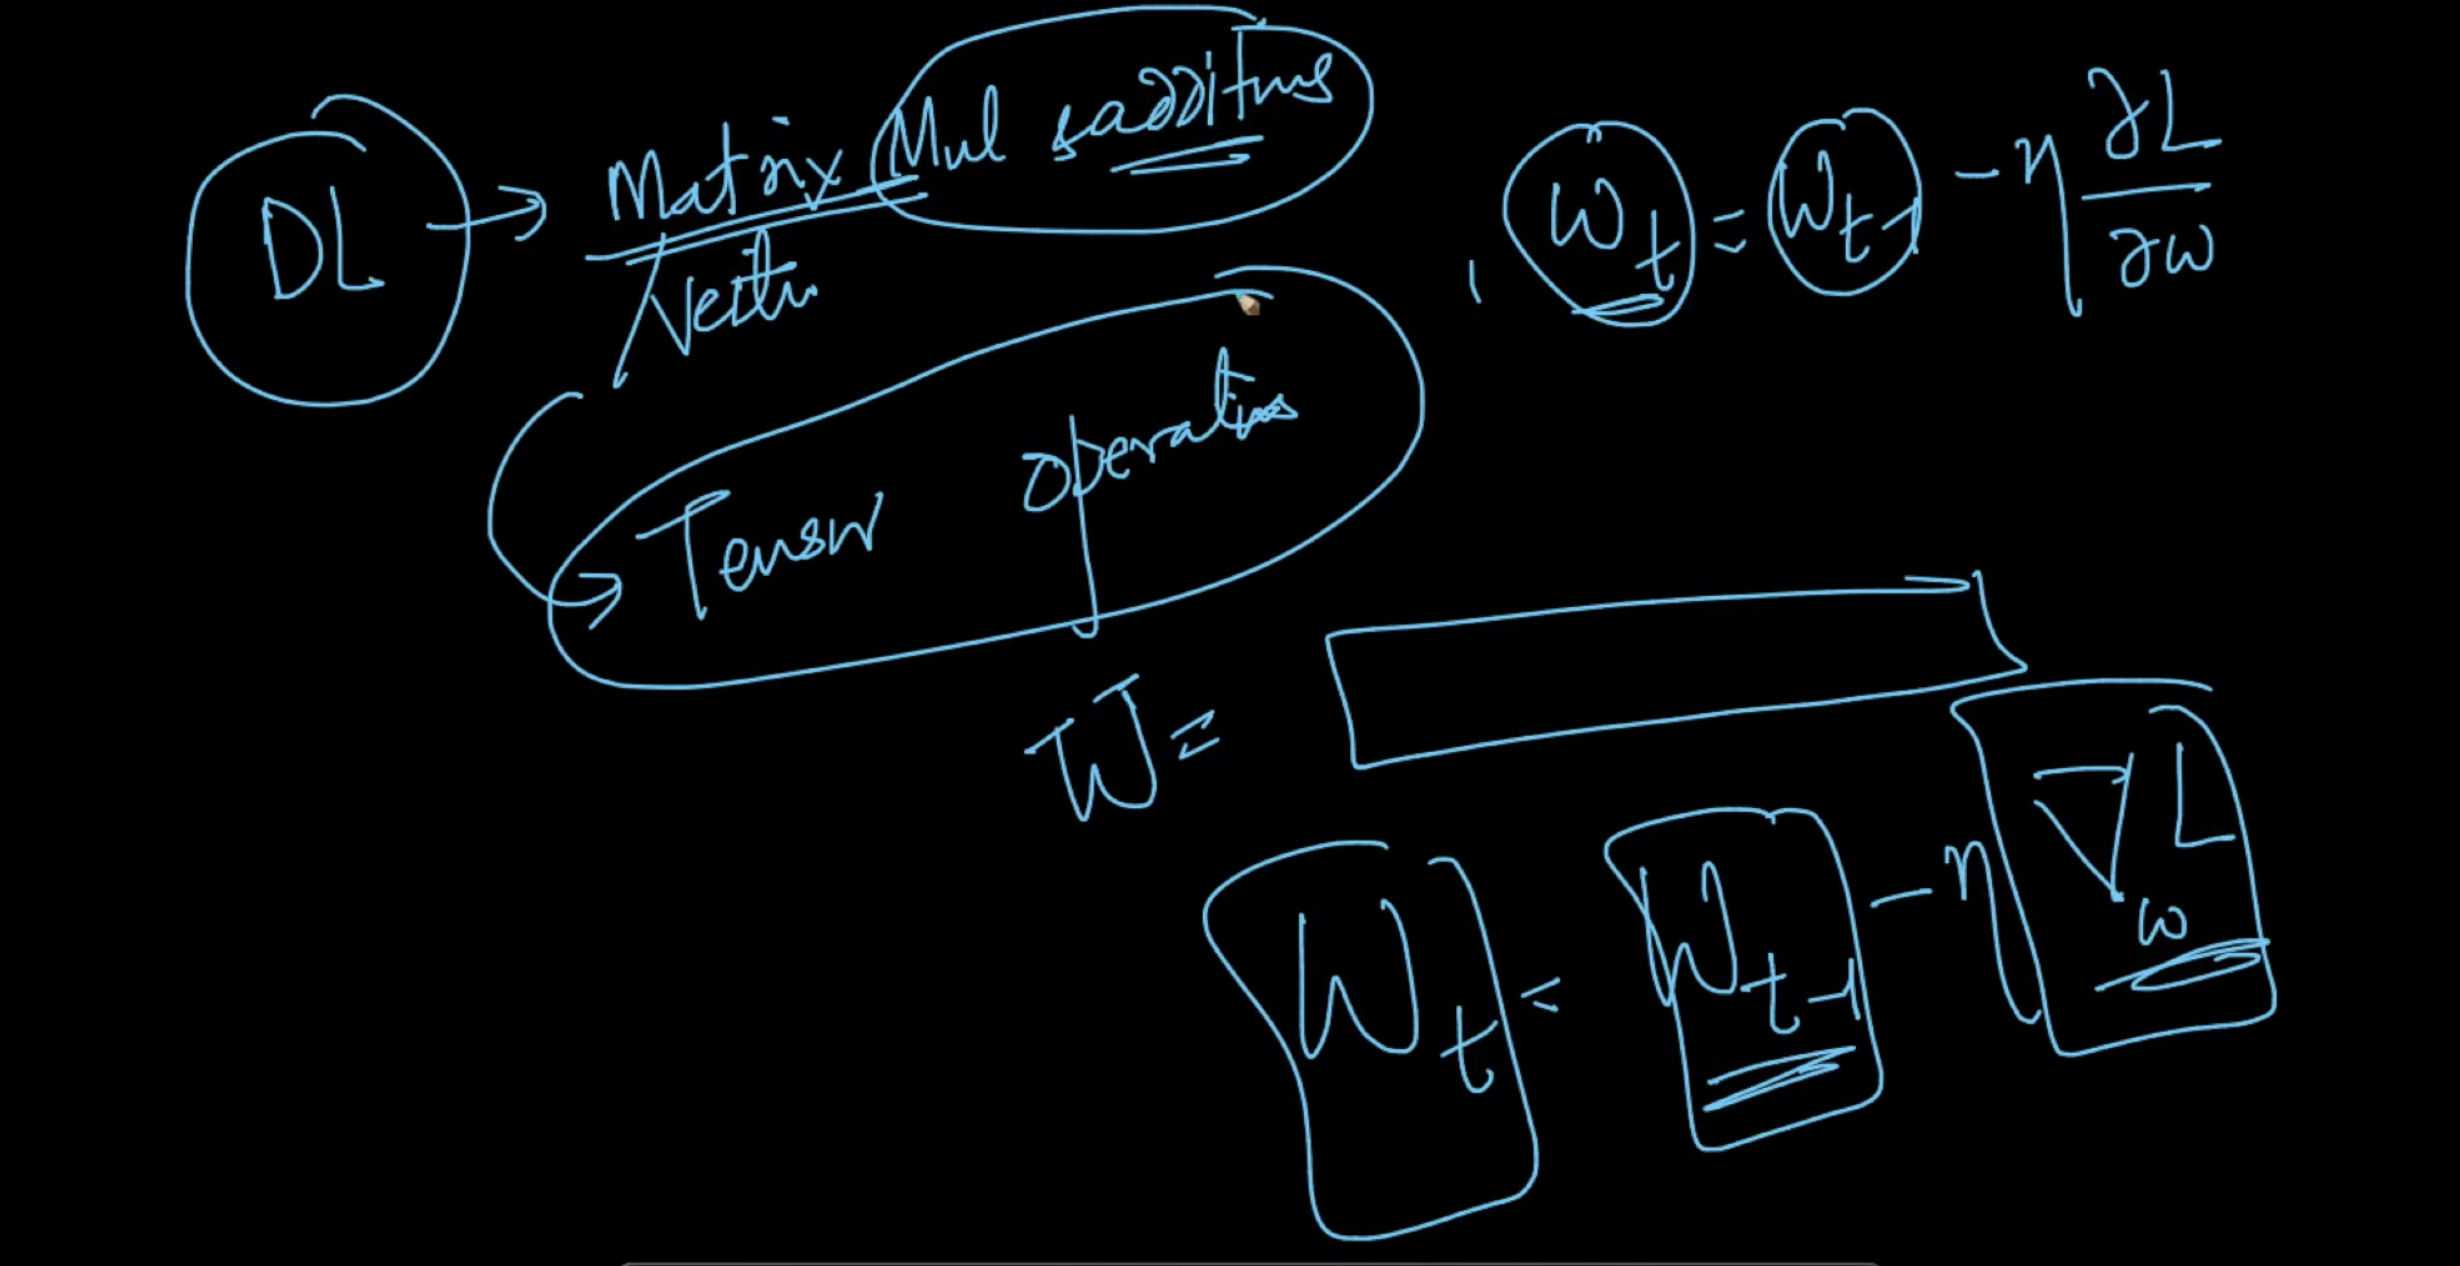 DL → Matrix Mul & additions
/ Vector
Tensor operations
w_t = w_{t-1} - η ∂L/∂w
W =
W_t = W_{t-1} - η ∇_w L